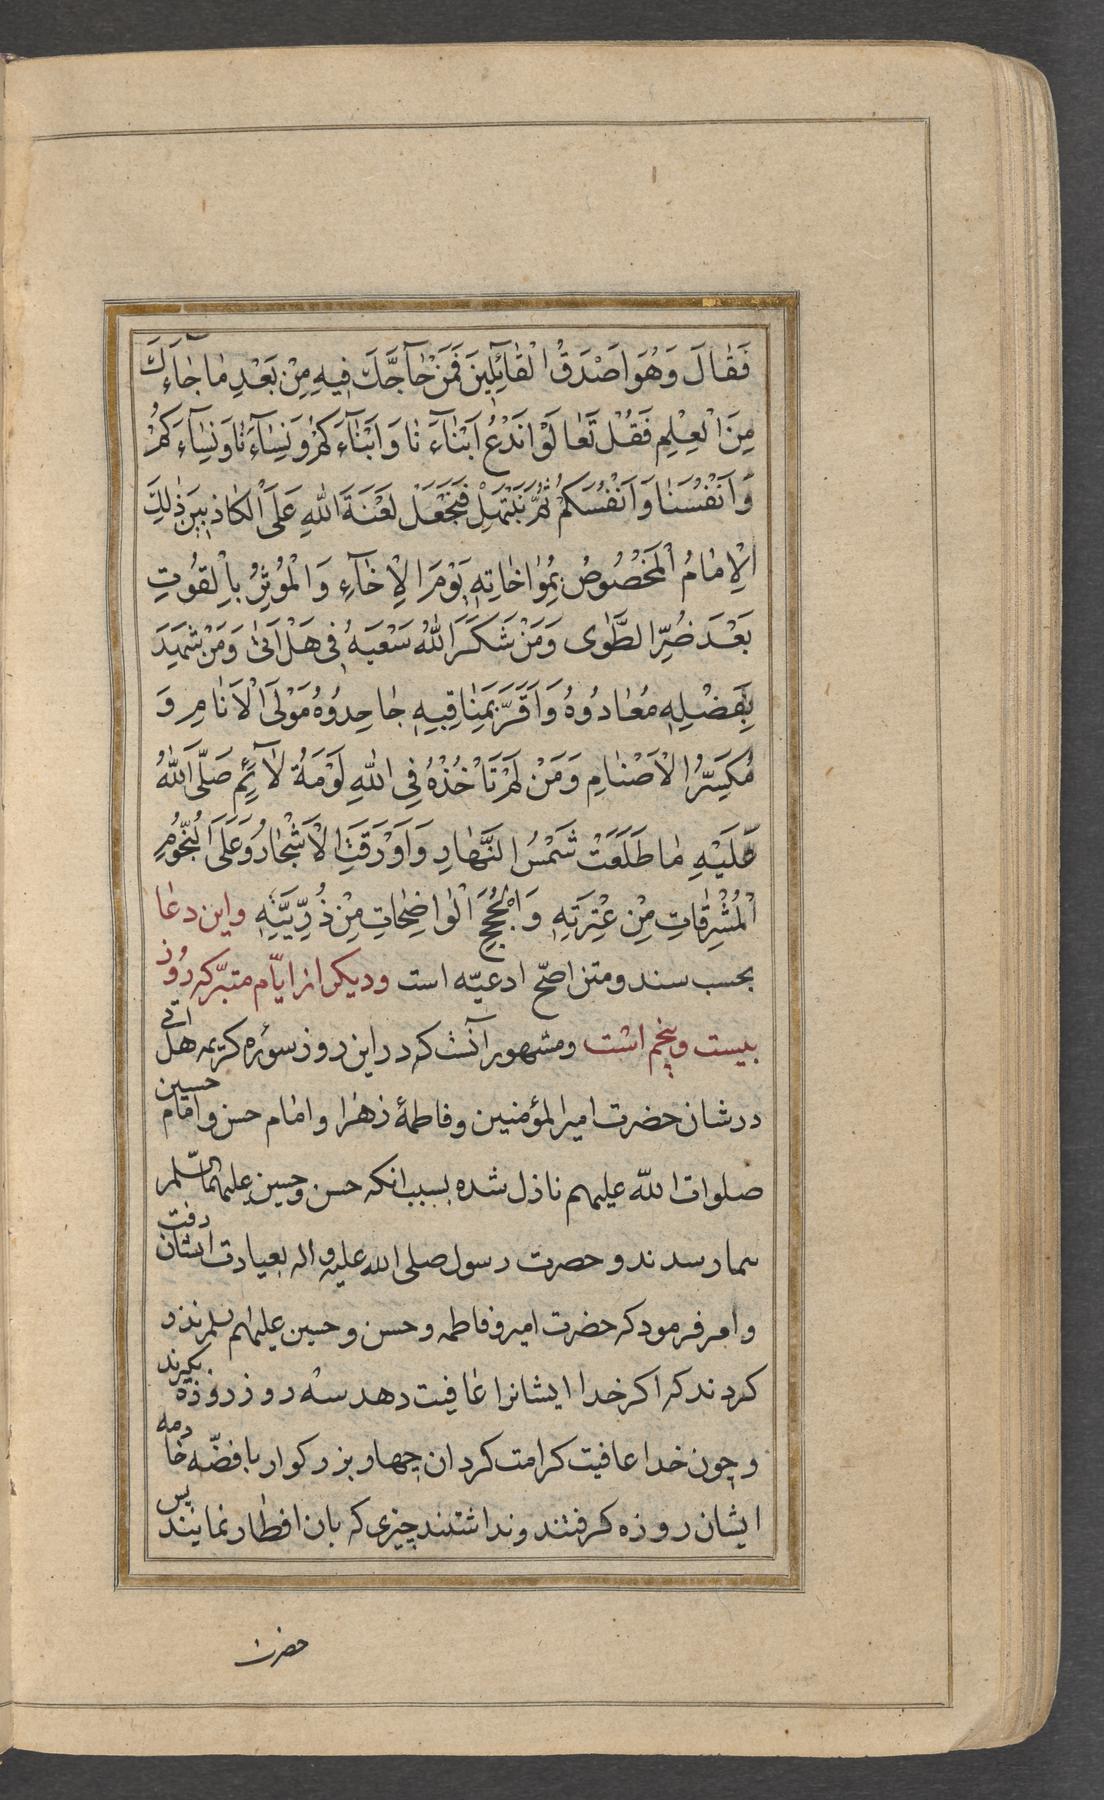 فَقٰالَ وَهُوَ اَصْدَقُ الْقٰائِلِينَ فَمَنْ حٰآجَّكَ فِيهِ مِنْ بَعْدِ مٰا جٰاءَكَ
مِنَ الْعِلْمِ فَقُلْ تَعٰالَوْا نَدْعُ اَبْنٰآءَ نٰا وَاَبْنٰآءَكُمْ وَنِسٰاءَنٰا وَنِسٰآءَكُمْ
وَاَنْفُسَنٰا وَاَنْفُسَكُمْ ثُمَّ نَبْتَهِلْ فَنَجْعَلْ لَعْنَةَ اللهِ عَلَى الْكٰاذِبِينَ ذٰلِكَ
الْاِمٰامُ الْمَخْصُوصُ بِمُوٰاخٰاتِهِ يَوْمَ الْاِخٰآءِ وَالْمُؤثِرُ بِالْقُوتِ
بَعْدَ ضُرِّ الطَّوٰى وَمَنْ شَكَرَ اللهُ سَعْيَهُ فِى هَلْ اَتٰى وَمَنْ شَهِدَ
بِفَضْلِهِ مُعٰادُوهُ وَاَقَرَّ بِمَنٰاقِبِهِ جٰاحِدُوُهُ مَوْلَى الْاَنٰامِ وَ
مُكَسِّرُ الْاَصْنٰامِ وَمَنْ لَمْ تَاْخُذْهُ فِى اللهِ لَوْمَةُ لٰآئِمٍ صَلَّى اللهُ
عَلَيْهِ مٰا طَلَعَتْ شَمْسُ النَّهٰارِ وَاَوْرَقَتِ الْاَشْجٰارُ وَعَلَى النُّجُومِ
الْمُشْرِقٰاتِ مِنْ عِتْرَتِهِ وَالْحُجَجِ الْوٰاضِحٰاتِ مِنْ ذُرِّيَّتِهِ واین دعا
بحسب سند ومتن اصحّ ادعیّه است ودیکر از ایّام متبرّکه روُز
بیست وپنجم است ومشهور آنست که در این روز سوُره کریمه هل اتی
در شان حضرت امیرالمؤمنین وفاطمهٔ زهرا وامام حسن وامام حسین
صلوات اللّه علیهم نازل شده بسبب انکه حسن وحسین علیهما السّلم
بیمار شدند وحضرت رسول صلی الله علیه واله بعیادت ایشان رفت
وامر فرمود که حضرت امیر وفاطمه وحسن وحسین علیهم السلم نذر
کردند که اکر خدا ایشانرا عافیت دهد سه روز روزه بکیرند
وچون خدا عافیت کرامت کرد ان چهار بزرکوار با فضّه خادمه
ایشان روزه کرفتند ونداشتند چیزی که بان افطار نمایند پس
حضرت